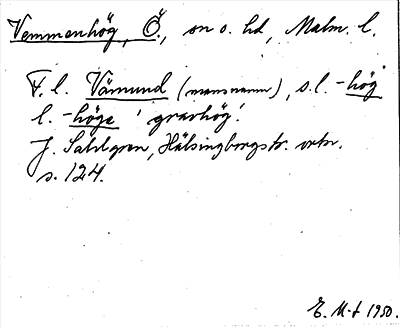 Vemmenhög, Ö., sn o. hd, Malm. l.
F. l. Vämund (mansnamn), s. l. -hög
l. -höge 'gravhög'.
J. Sahlgren, Hälsingborgstr. ortn.
s. 124.
E. M-t 1950.